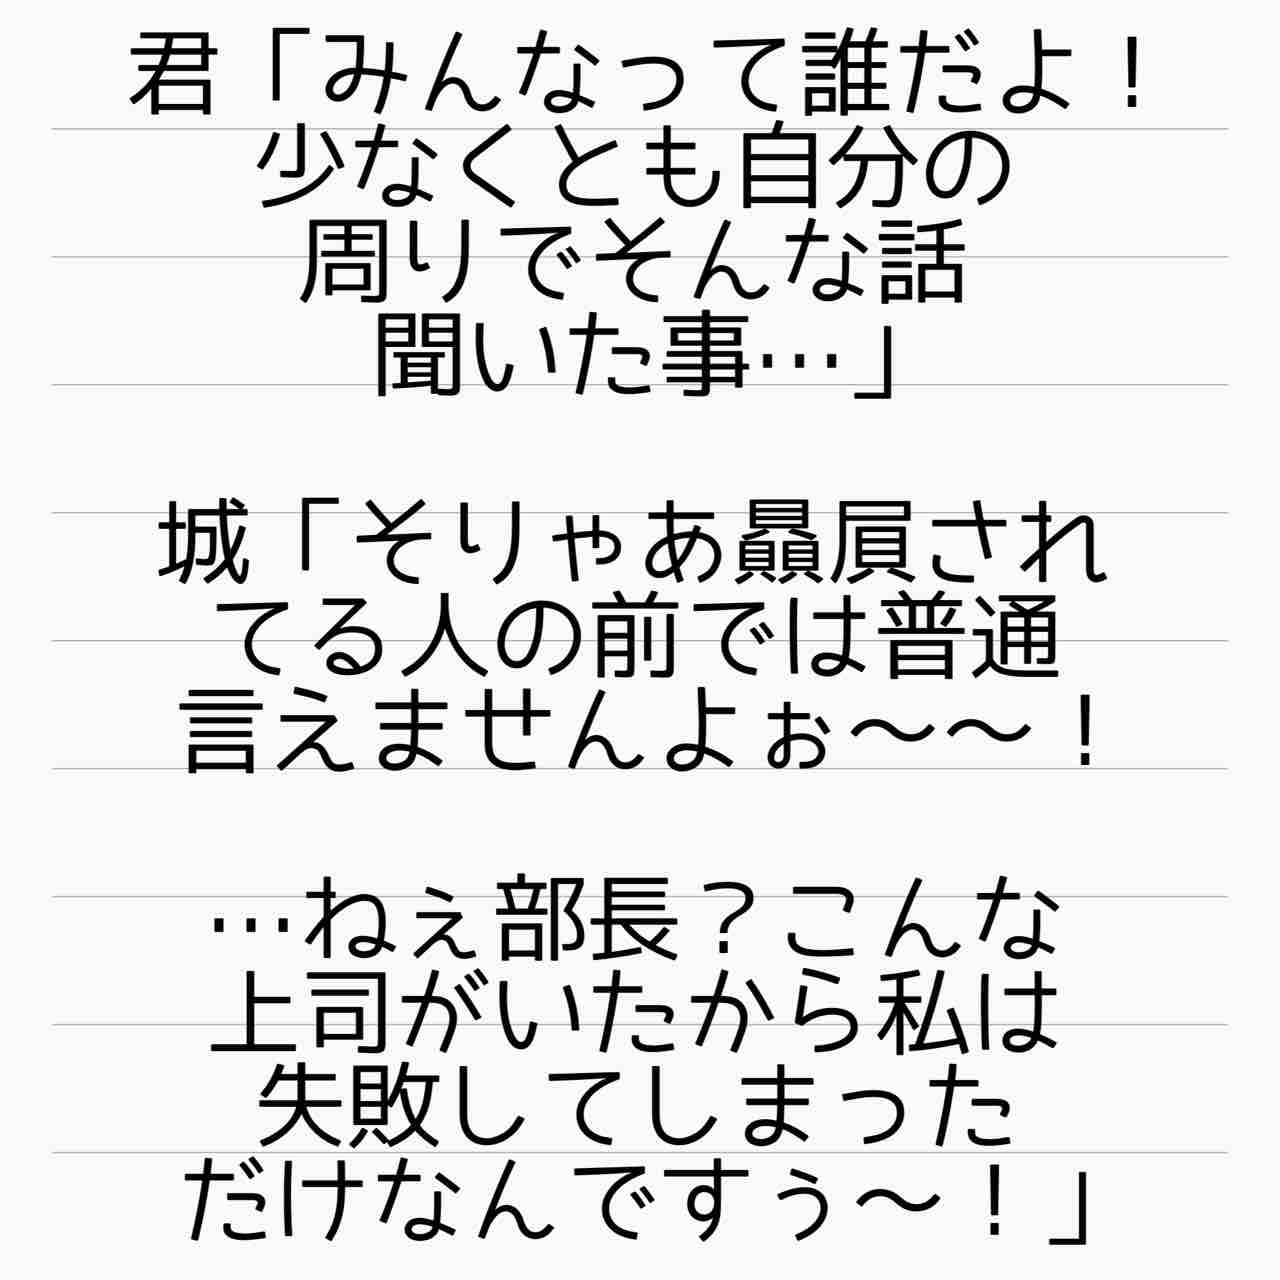 君「みんなって誰だよ！
少なくとも自分の
周りでそんな話
聞いた事…」
城「そりゃあ贔屓され
てる人の前では普通
言えませんよぉ〜〜！
…ねぇ部長？こんな
上司がいたから私は
失敗してしまった
だけなんですぅ〜！」